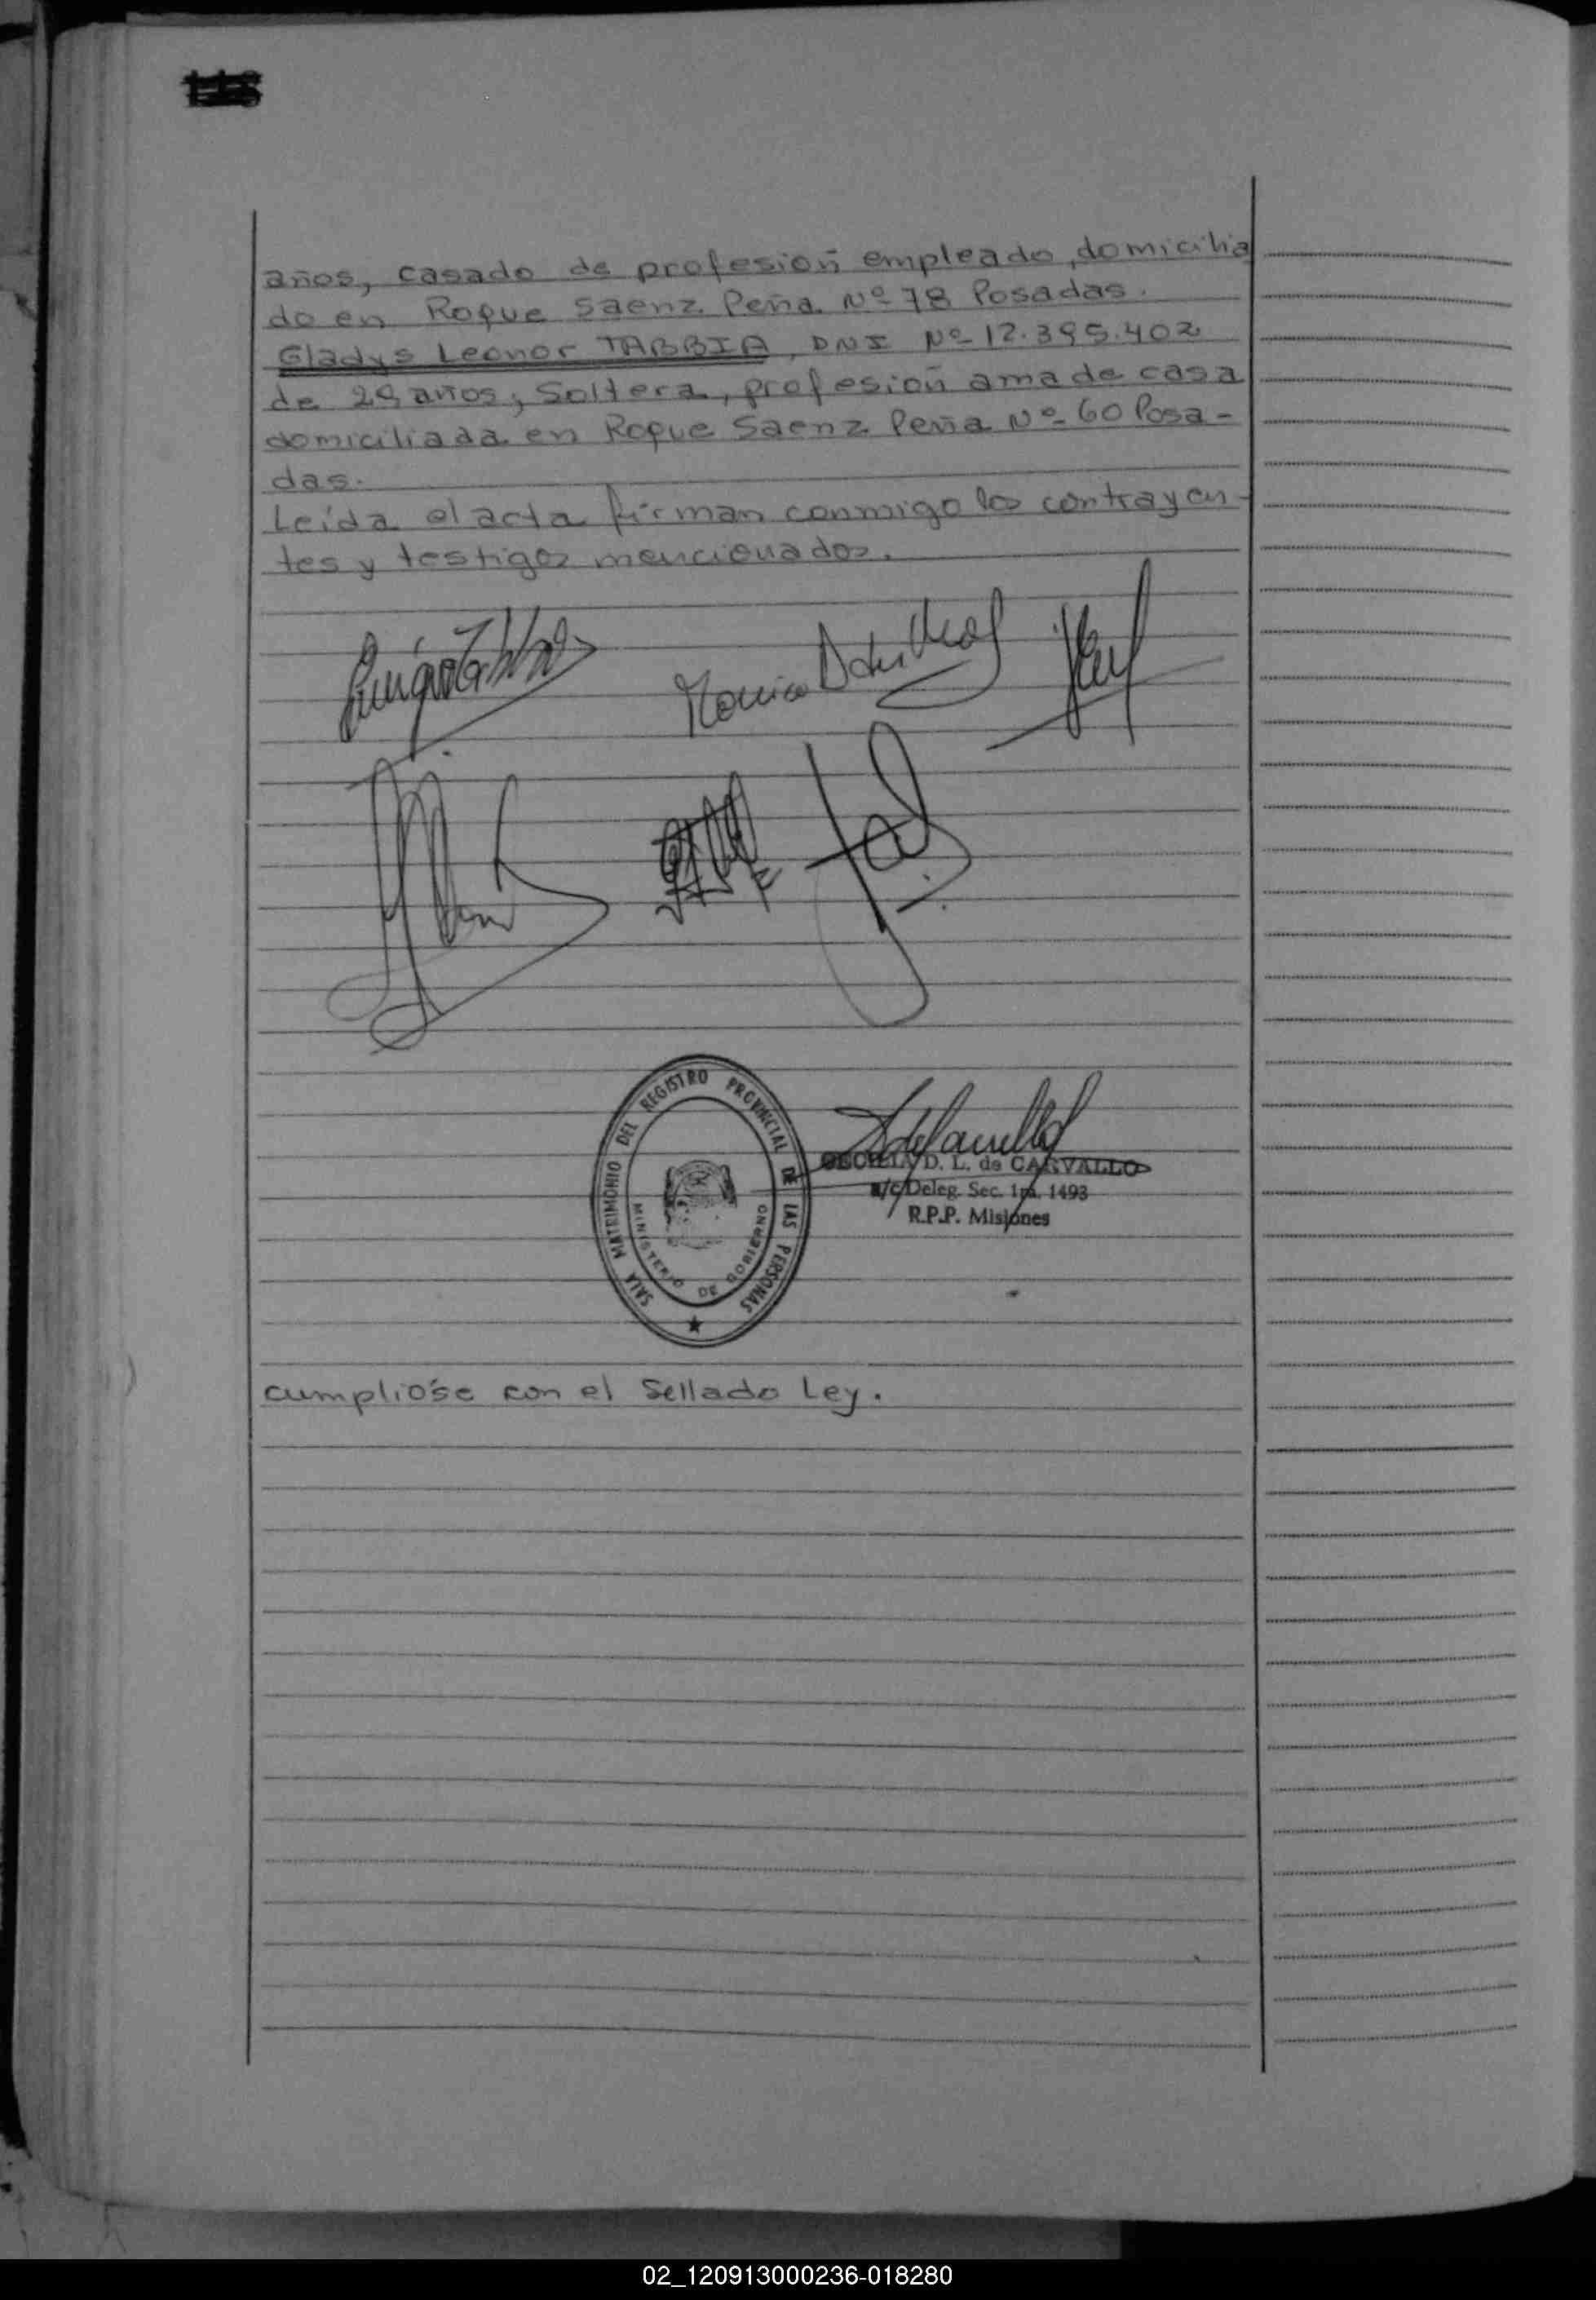 años, casado de profesión empleado, domicilia
do en Roque Saenz Peña Nº 78 Posadas.
Gladys Leonor TABBIA, DNI Nº 12.395.402
de 29 años, Soltera, profesión ama de casa
domiciliada en Roque Saenz Peña Nº 60 Posa-
das.
Leída el acta firman conmigo los contrayen-
tes y testigos mencionados.
SALA MATRIMONIO DEL REGISTRO PROVINCIAL DE LAS PERSONAS
MINISTERIO DE GOBIERNO
D. L. de CARVALLO
a/c Deleg. Sec. 1ra. 1493
R.P.P. Misiones
cumplióse con el Sellado Ley.
02_120913000236-018280